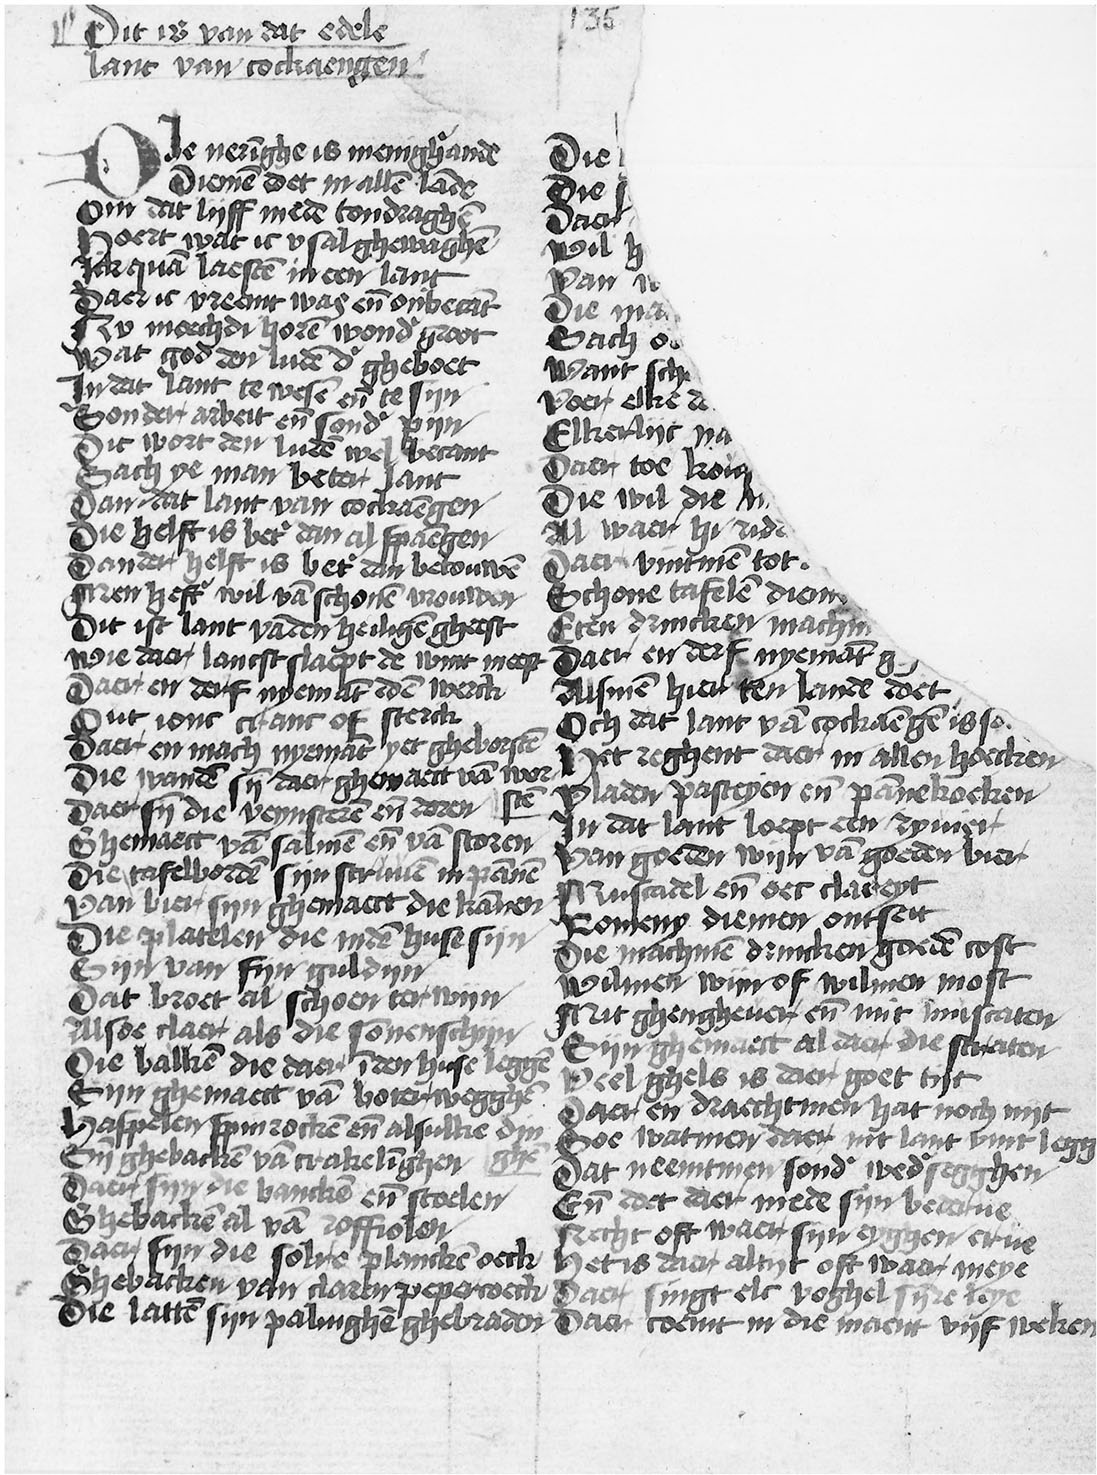 Dit is van dat edele
lant van cockaengen
135
DIe nerīghe is menigħande
Diemē doet in allē lādē
Om dat lijff mede tondraghē
Hoert wat ic v sal ghewaghē
Ick quā laestē in een lant
Daer ic vreemt was eñ onbecāt
Nv moechdi horē wondʼ groot
Wat god den ludē dʼ gheboet
In dat lant te wesē eñ te sijn
Sonder arbeit eñ sondʼ pijn
Dit wort den ludē wel becant
Sach ye man beter lant
Dan dat lant van cockaēngen
Die helft is betʼ dan al spaēngen
Dander helft is betʼ dan betouwē
Men heftʼ wil vā schonē vrouwen
Dit ist lant vādēn heiligē gheest
Wie daer lancst slaept de wint meest
Daer en derf nyemāt doē werck
Out ionc cranc of sterck
Daer en mach nyemāt yet gheborstē
Die wandē sij daer ghemaect vā wor
stē
Daer sij die veynsterē eñ doren
Ghemaect vā salmē eñ vā storen
Die tafelbordē sijn struuē in pānē
Van bier sijn ghemaect die kānen
Die platelen die indē huse sijn
Sijn van fijn guldijn
Dat broet al schoen ter wijn
Alsoe claer als die sōnenschijn
Die balkē die daer ī den huse leggē
Sijn ghemaect vā boter wegghē
Haspelen spinrockē eñ alsulke din
ghē
Sijn ghebackē vā crakelīghen
Daer sijn die banckē eñ stoelen
Ghebackē al vā roffiolen
Daer sijn die solre planckē oeck
Ghebacken van claren pepercoeck
Die lattē sijn palinghē ghebraden
Die
Die
Daer
Wil
Van
Die
Sach
Want
Voer elke
Elkerlijc
Daer toe
Die wil die
Al waer hi
Daer vintmē tot
Schone tafelē
Eten drincken
Daer en derf nyemāt
Alsmē hier ten lande doet
Och dat lant vā cockaēngē is
Het reghent daer in allen hoecken
Vladen pasteyen eñ pānekoecken
In dat lant loept een rymer
Van goeden wijn vā goeden bier
Muscadel eñ oec clareyt
Romeny diemen ontseit
Die machmē drincken goedē cost
Wilmen wijn of wilmen most
Mit ghengheuer eñ mit muscaten
Sijn ghemaect al daer die straten
Veel ghels is daer goet tijt
Daer en draechtmen hat noch nijt
Soe watmen daer int lant vint legg
Dat neemtmen sondʼ wedʼ segghen
Eñ doet daer mede sijn bederue
Recht oft waer sijn eyggen erue
Het is daer altijt oft waer meye
Daer singt elc voghel sijre leye
Daer coemt in die maent vijf weken